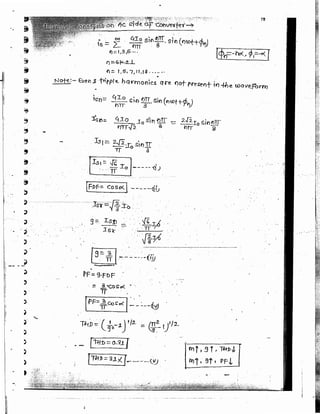 on ac side of converter →
i₀ = Σ 4I₀/nπ sin nπ/3 sin(nωt+φn)
n=1,3,5..
φn = -nα, φ₁ = -α
n = 6k±1
n = 1, 5, 7, 11, 13 -----
Note:- Even & triplen harmonics are not present in the waveform
isn = 4I₀/nπ sin nπ/3 sin(nωt+φn)
Isn = 4I₀/nπ√2 sin nπ/3 = 2√2/nπ I₀ sin nπ/3
Is1 = 2√2/π I₀ sin π/3
Is1 = √6/π I₀ ------ (i)
FDF = cosα ------ (ii)
Isr = √2/3 I₀
g = Is1/Isr = √6/π I₀ / √2/3 I₀
g = 3/π ------ (iii)
PF = g.FDF
= 3/π cosα
PF = 3/π cosα ------ (iv)
THD = (1/g² - 1)^1/2 = (π²/9 - 1)^1/2
THD = 0.31
THD = 31% ------ (v)
m↑, g↑, THD↓
m↑, g↑, PF↓